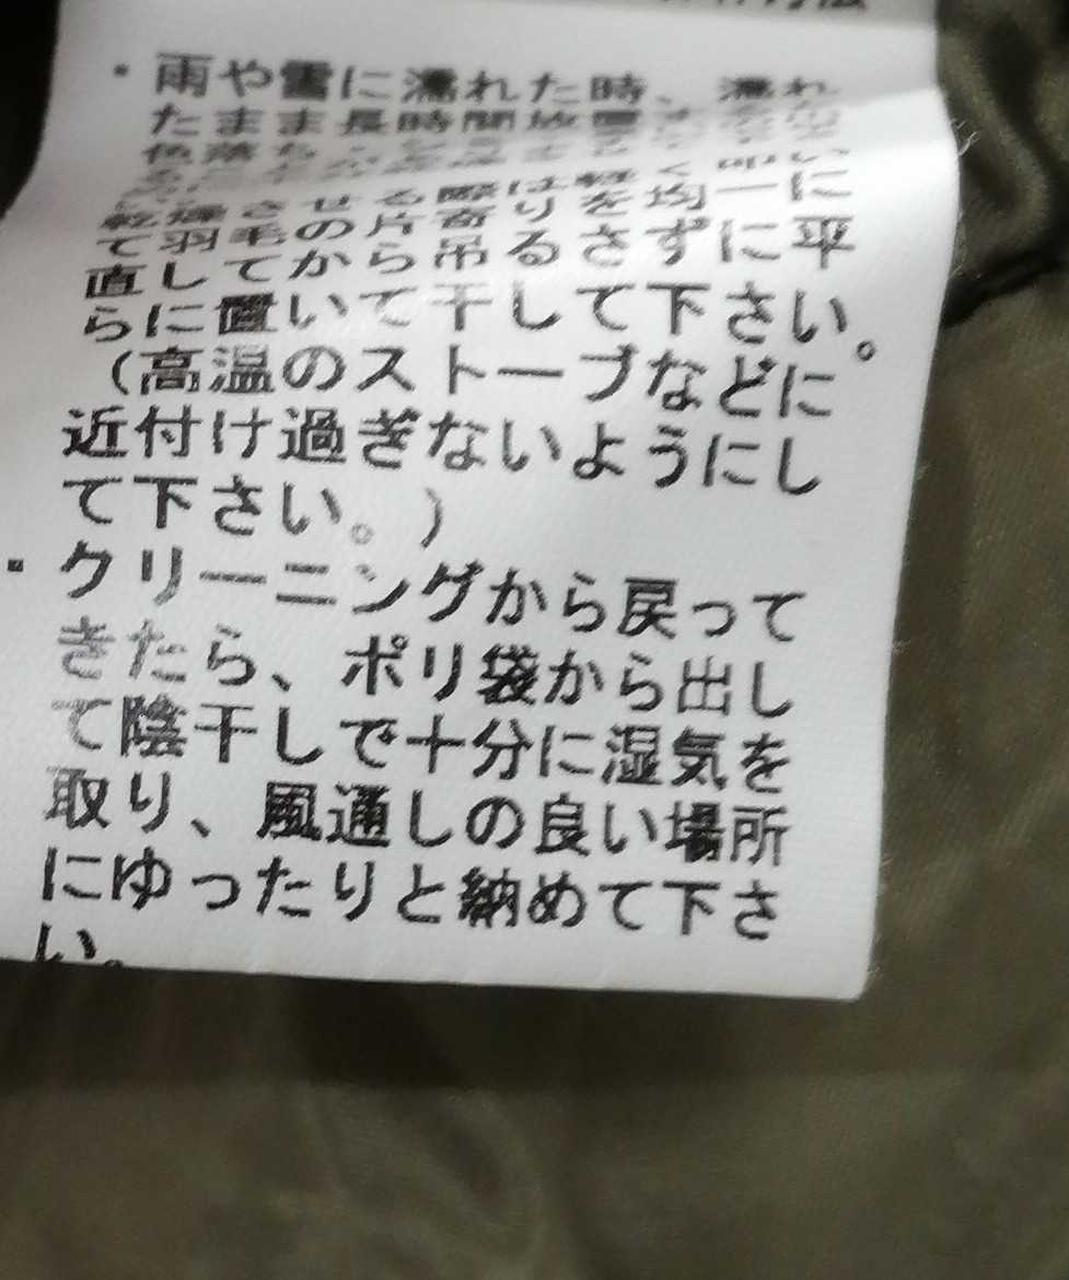 ・雨や雪に濡れた時、濡れ
たまま長時間放置
色落ち
乾燥させる際は軽く均一に
て羽毛の片寄りを
直してから吊るさずに平
らに置いて干して下さい。
(高温のストーブなどに
近付け過ぎないようにし
て下さい。)
・クリーニングから戻って
きたら、ポリ袋から出し
て陰干しで十分に湿気を
取り、風通しの良い場所
にゆったりと納めて下さ
い。